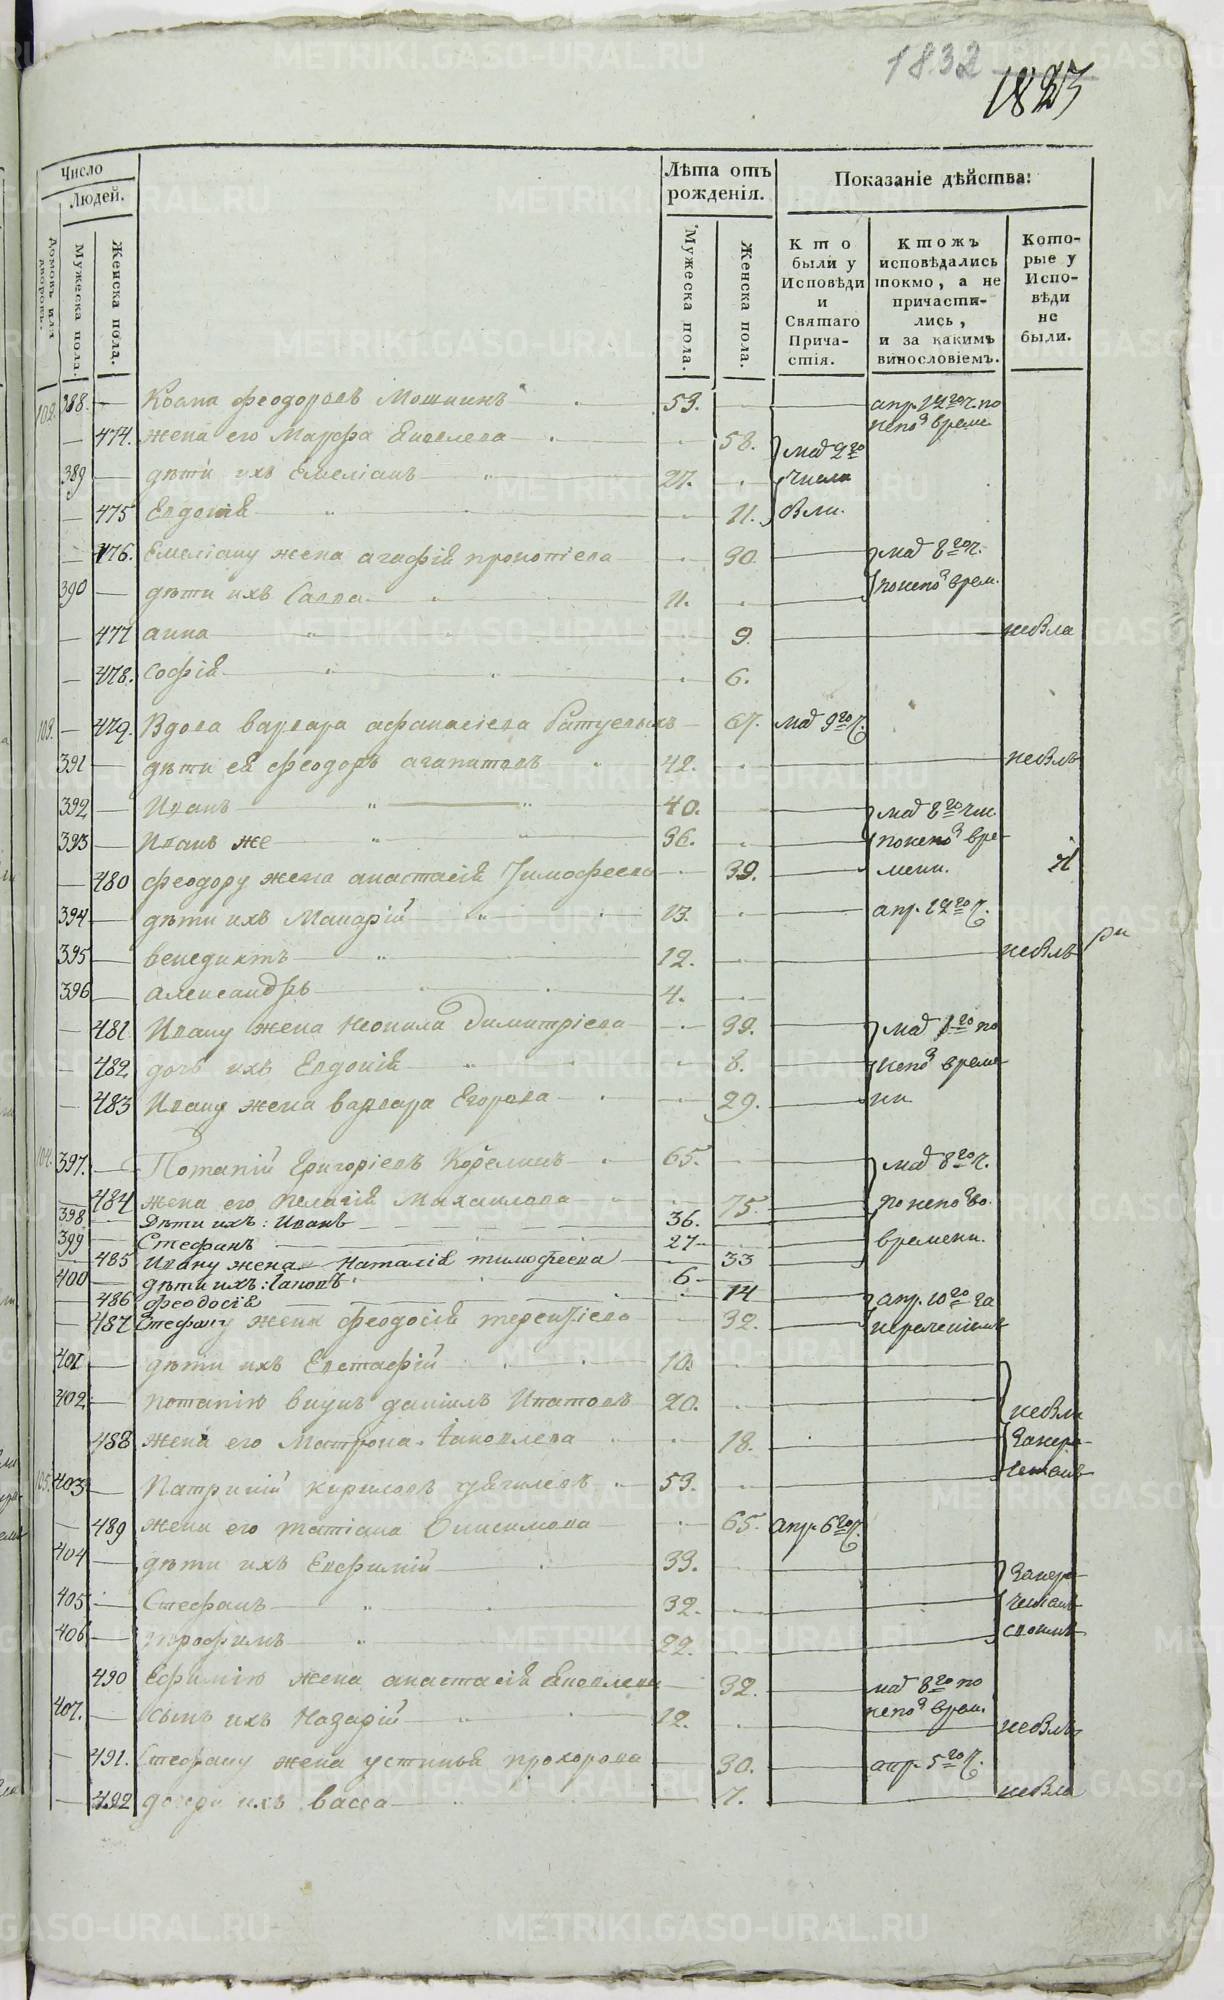 1832
1823
Число
Людей.
Домовъ или дворовъ.
Мужеска пола.
Женска пола.
Лѣта отъ рожденія.
Мужеска пола.
Женска пола.
Показаніе дѣйства:
Кто были у Исповѣди и Святаго Причастія.
Ктожъ исповѣдались токмо, а не причастились, и за какимъ винословіемъ.
Которые у Исповѣди не были.
102. 388. — Козма феодоровъ Мошнинъ 53. апр. по непод време
— 474. жена его Марфа Яковлева 58. маія 2го
389 — дѣти ихъ Емеліанъ 27. числа
— 475 Евдокія 11. были.
— 476. Емеліану жена агафія прокопіева 30. маія 8го ч.
390 — дѣти ихъ Савва 11. по непод врем.
— 477 анна 9. небыла
— 478. софія 6.
103. — 479. Вдова варвара афанасіева 67. маія 9го ч.
391 — дѣти ея феодоръ агапитовъ 42. небылъ
392 — Иванъ 40. маія 8го чис
393 — Иванъ же 36. по непод вре-
— 480 феодору жена анастасія Тимофеева 39. мени.
394 — дѣти ихъ Макарій 13. апр. 12го ч.
395 — венедиктъ 12. небылъ
396 — Александръ 4.
— 481 Ивану жена Неонила Димитріева 39. маія по
— 482 дочь ихъ Евдокія 8. непод време
— 483 Ивану жена варвара Егорова 29. ни
104. 397. — Потапій григоріевъ 65. маія 8го ч.
— 484 жена его пелагія Михаилова 75. по непод во.
398 — Дѣти ихъ: Иванъ 36.
399 — Стефанъ 27 времени.
— 485 Ивану жена Наталія тимофеева 33
400 — дѣти ихъ: Іаковъ 6
— 486 феодосія 14 апр. 10го за
— 487 Стефану жена феодосія терентіева 32.
401 — дѣти ихъ Евстафій 10.
402 — потапію внукъ даніилъ Ипатовъ 20. небыли
— 488 жена его Матрона Іаковлева 18.
105. 403 — Патрикій кириловъ 53.
— 489 жена его татіана Онисимова 65. апр. 6го ч.
404 — дѣти ихъ Евфимій 33.
405 — Стефанъ 32.
406 — трофимъ 22.
490 Ефимію жена анастасія Яковлева 32. маія 8го по
407. — сынъ ихъ Назарій 12. непод врем. небылъ
— 491. Стефану жена устинья прохорова 30. апр. 5го ч.
— 492 дочери ихъ васса 7. небыла